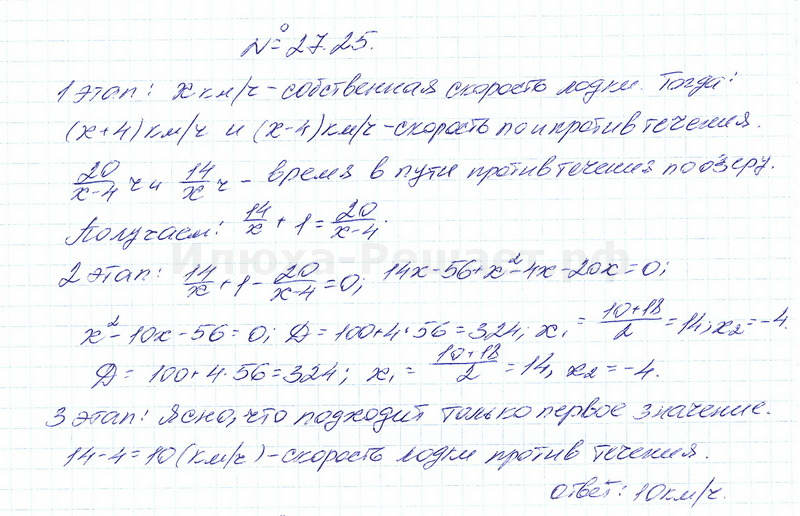 № 27.25.
1 этап: x км/ч - собственная скорость лодки. Тогда:
(x+4) км/ч и (x-4) км/ч - скорость по и против течения.
20/(x-4) ч и 14/x ч - время в пути против течения по озеру.
Получаем: 14/x + 1 = 20/(x-4).
Илюха-Решает.рф
2 этап: 14/x + 1 - 20/(x-4) = 0; 14x-56+x²-4x-20x=0;
x²-10x-56=0; D=100+4·56=324; x₁ = (10+18)/2 = 14; x₂=-4.
D = 100+4·56=324; x₁ = (10+18)/2 = 14, x₂=-4.
3 этап: Ясно, что подходит только первое значение.
14-4=10 (км/ч) - скорость лодки против течения.
ответ: 10 км/ч.